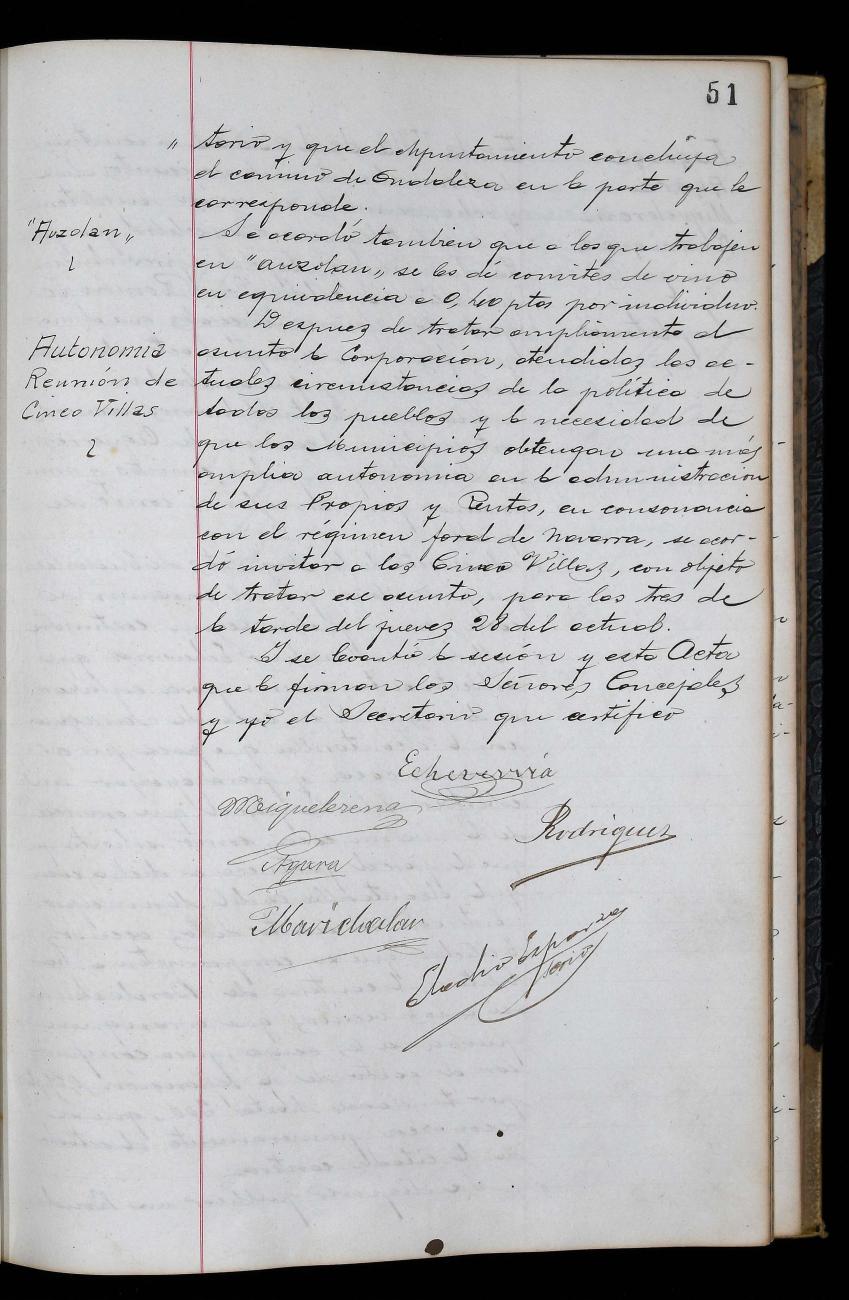 51
" torio y que el Ayuntamiento concluya
el camino de Ondaleza en la parte que le
corresponde.
"Auzolan„
Se acordó tambien que a los que trabajen
en "auzolan„ se les dé convites de vino
en equivalencia a 0,40 ptas por individuo.
Autonomia
Reunión de
Cinco Villas
Despues de tratar ampliamente el
asunto la Corporación, atendidas las ac-
tuales circunstancias de la política de
todos los pueblos y la necesidad de
que los Municipios obtengan una más
amplia autonomia en la administracion
de sus Propios y Rentas, en consonancia
con el régimen foral de Navarra, se acor-
dó invitar a las Cinco Villas, con objeto
de tratar ese asunto, para las tres de
la tarde del jueves 28 del actual.
Y se levantó la sesión y esta Acta
que la firman los Señores Concejales
y yo el Secretario que certifico
Echeverría
Miquelerena
Rodriguez
Marichalar
Eladio Esparza
Serio